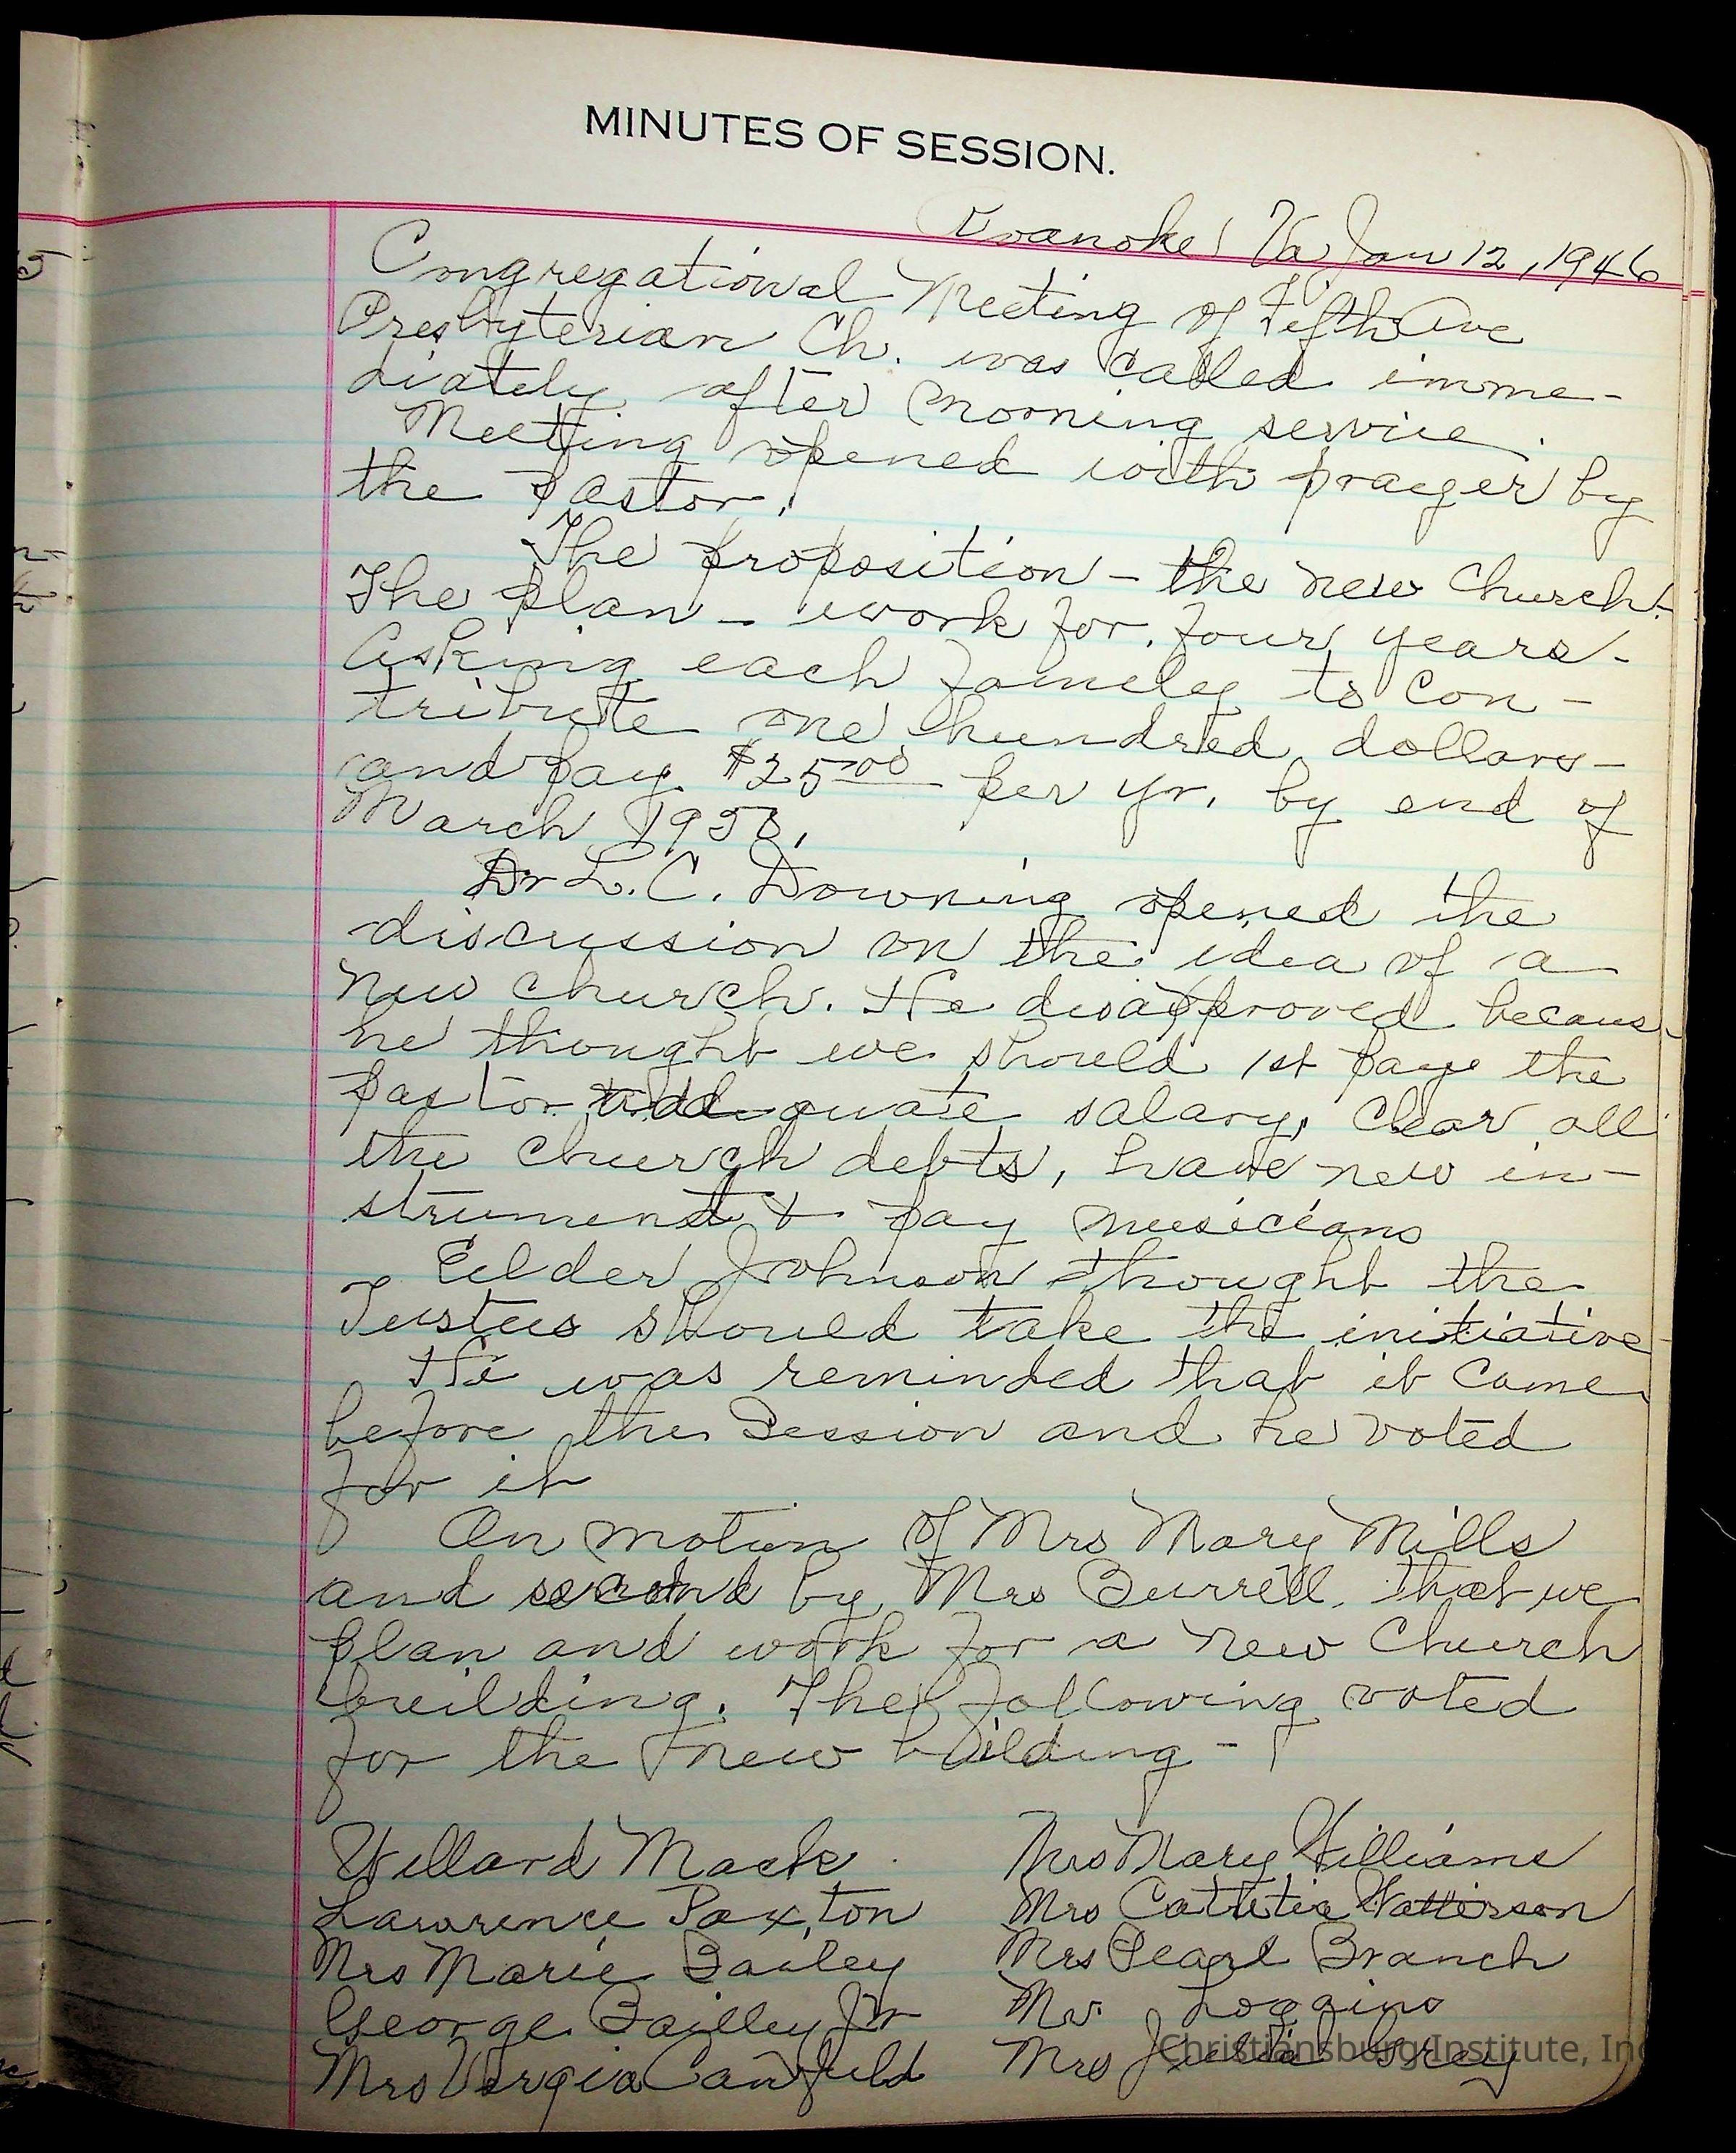 MINUTES OF SESSION.
Roanoke, Va Jan 12, 1946
Congregational Meeting of Fifth Ave
Presbyterian Ch. was called imme-
diately after morning service.
Meeting opened with prayer by
the Pastor.
The proposition - the new Church.
The plan - work for four years -
Asking each family to con-
tribute one hundred dollars -
and pay $25.00 per yr. by end of
March 1950.
Dr L. C. Downing opened the
discussion on the idea of a
new church. He disapproved becaus
he thought we should 1st paye the
pastor addequate salary, clear all
the church debts, have new in-
strument & pay musicians
Eelder Johnson thought the
Tustees should take the initiative
He was reminded that it came
before the Session and he voted
for it
On motion of Mrs Mary Mills
and second by Mrs Burrell, that we
plan and work for a new Church
building. The following voted
for the new building -
Willard Mack
Lawrence Paxton
Mrs Marie Bailey
George Bailley Jr
Mrs Vergia Canfield
Mrs Mary Williams
Mrs Watterson
Mrs Pearl Branch
Mr. Loggins
Mrs Julia Gray
Christiansburg Institute, Inc